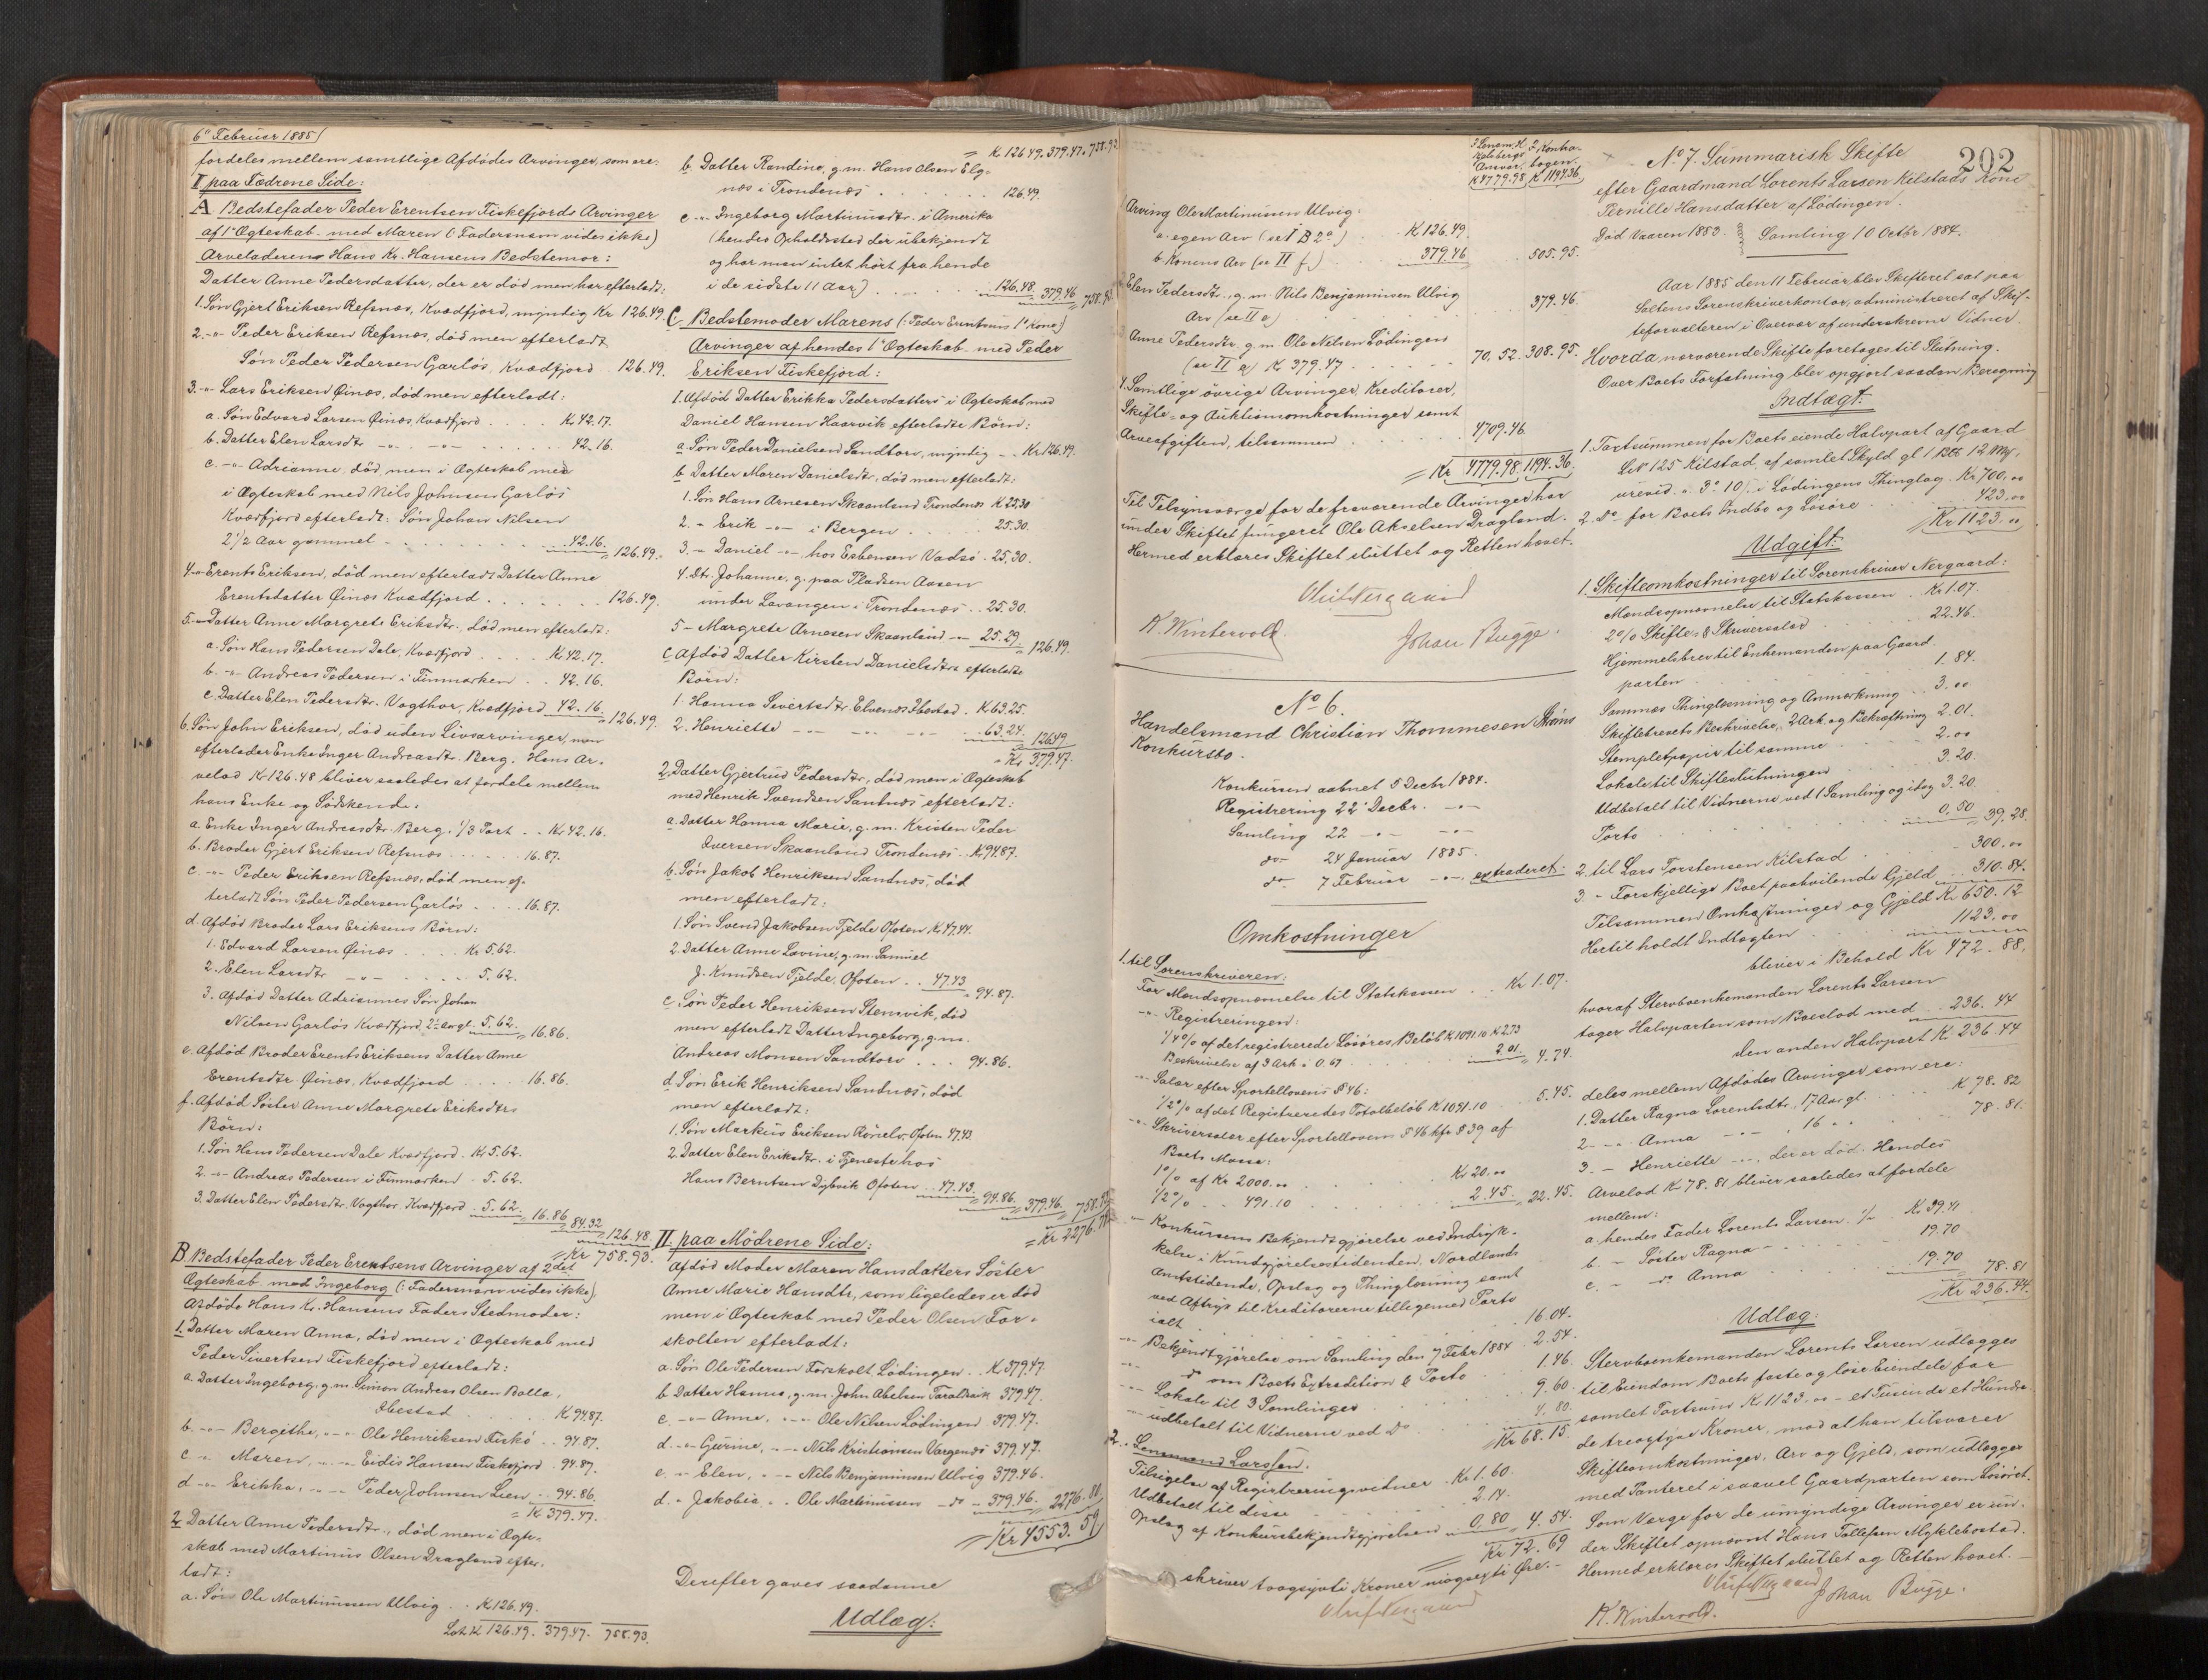 6te Februar 1885
fordeles mellem samtlige Afdødes Arvinger, som ere:
I paa Fædrene Side:
A Bedstefader Peder Erentsen Fiskefjords Arvinger
af 1ste Ægteskab med Maren (: Fadersnavn vides ikke)
Arveladeren Hans Kr. Hansens Bedstemor:
Datter Anne Pedersdatter, der er død men har efterladt:
1. Søn Gjert Eriksen Refsnæs, Kvædfjord, myndig Kr 126.49.
2. -"- Peder Eriksen Refsnæs, død men efterladt
Søn Peder Pedersen Garløs, Kvædfjord 126.49.
3. -"- Lars Eriksen Øinæs, død men efterladt:
a. Søn Edvard Larsen Øinæs, Kvædfjord Kr 42.17.
b. Datter Elen Larsdtr -"- -"- 42.16.
c. -"- Adrianne, død men i Ægteskab med
i Ægteskab med Nils Johnsen Garløs
Kvædfjord efterladt: Søn Johan Nilsen
2 1/2 Aar gammel 42.16. = 126.49.
4. -"- Erents Eriksen, død men efterladt Datter Anne
Erentsdatter Øinæs Kvædfjord 126.49.
5. -"- Datter Anne Margrete Eriksdtr., død men efterladt:
a. Søn Hans Pedersen Dale, Kvædfjord Kr 42.17.
b. -"- Andreas Pedersen i Finmarken 42.16.
c. Datter Elen Pedersdtr. Vagthor, Kvædfjord 42.16. = 126.49.
6. Søn John Eriksen, død uden Livsarvinger, men
efterlader Enke Inger Andreasdtr. Berg. Hans Ar-
velod Kr 126.48 bliver saaledes at fordele mellem
hans Enke og Sødskende:
a. Enke Inger Andreasdtr. Berg, 1/3 Part Kr 42.16.
b. Broder Gjert Eriksen Refsnæs 16.87.
c. -"- Peder Eriksen Refsnæs, død men ef-
terladt Søn Peder Pedersen Garløs 16.87.
d. Afdød Broder Lars Eriksens Børn:
1. Edvard Larsen Øinæs Kr 5.62.
2. Elen Larsdtr -"- 5.62.
3. Afdød Datter Adriannes Søn Johan
Nilsen Garløs Kvædfjord 2 1/2 aar gl. 5.62. = 16.86.
e. Afdød Broder Erents Eriksens Datter Anne
Erentsdtr. Øinæs, Kvædfjord 16.86.
f. Afdød Søster Anne Margrete Eriksdtrs
Børn:
1. Søn Hans Pedersen Dale Kvædfjord. Kr 5.62.
2. -"- Andreas Pedersen i Finmarken 5.62.
3. Datter Elen Pedersdtr. Vagthor Kvædfjord 5.62. = 16.86 = 84.32 = 126.48.
= Kr 758.93.
B. Bedstefader Peder Erentsens Arvinger af 2det
Ægteskab med Ingeborg (: Fadersnavn vides ikke)
Afdøde Hans Kr. Hansens Faders Stedmoder:
1. Datter Maren Anna, død men i Ægteskab med
Peder Sivertsen Fiskefjord efterladt:
a. Datter Ingeborg, g.m. Simon Andreas Olsen Bolla,
Ibestad K 94.87.
b. -"- Bergithe, -"- Ole Henriksen Fiskø 94.87.
c. " Maren, -"- Eidis Hansen Fiskefjord 94.87.
d. -"- Erikka, -"- Peder Johnsen Lien 94.86.
= K 379.47.
2. Datter Anne Pedersdtr., død men i Ægte-
skab med Martinus Olsen Dragland efter-
ladt:
a. Søn Ole Martinussen Ulvig K 126.49.
Lat. K 126.49. 379.47. 758.93.
= K 126.49. 379.47. 758.93
b. Datter Randine, g.m. Hans Olsen Elg-
næs i Trondenæs 126.49.
c. -"- Ingeborg Martinusdtr. i Amerika
(hendes Opholdssted der ubekjendt
og har man intet hørt fra hende
i de sidste 11 Aar) 126.48. = 379.46 = 758.93.
C. Bedstemoder Marens (: Peder Erentsens 1ste Kone)
Arvinger af hendes 1ste Ægteskab med Peder
Eriksen Fiskefjord:
1. Afdød Datter Erikka Pedersdatters i Ægteskab med
Daniel Hansen Haarvik efterladte Børn:
a. Søn Peder Danielsen Sandtorv, myndig Kr 126.49.
b. Datter Maren Danielsdtr., død men efterladt:
1. Søn Hans Arnesen Skaanland Trondenæs K 25.30
2. " Erik -"- i Bergen 25.30.
3. " Daniel -"- hos Esbensen Vadsø 25.30.
4. Dtr. Johanne, g. paa Pladsen Aasen
under Lavangen i Trondenæs 25.30.
5 - Margrete Arnesen Skaanland -"- 25.29. = 126.49.
c. Afdød Datter Kirsten Danielsdtrs efterladte
Børn:
1. Hanna Sivertsdtr. Elvenæs Ibestad K 63.25.
2. Henriette -"- -"- -"- 63.24. = 126.49
= Kr 379.47.
2. Datter Gjertrud Pedersdtr., død men i Ægteskab
med Henrik Svendsen Sandnæs efterladt:
a. Datter Hanna Marie, g.m. Kristen Peder
Iversen Skaanland Trondenæs K 94.87.
b. Søn Jakob Henriksen Sandnæs, død
men efterladt:
1. Søn Svend Jakobsen Fjelde Ofoten K 47.44.
2. Datter Anne Lovine, g.m. Samuel
J. Knudsen Fjelde, Ofoten 47.43 = 94.87.
c. Søn Peder Henriksen Stensvik, død
men efterladt Datter Ingeborg, g.m.
Andreas Monsen Sandtorv 94.86.
d. Søn Erik Henriksen Sandnæs, død
men efterladt:
1. Søn Markus Eriksen Ofoten 47.43.
2. Datter Elen Eriksdtr. i Tjeneste hos
Hans Berntsen Dybvik Ofoten 47.43. = 94.86. = 379.46. = 758.93
= Kr 2276.79
II paa Mødrene Side:
Afdød Moder Maren Hansdatters Søster
Anne Marie Hansdtr., som ligeledes er død
men i Ægteskab med Peder Olsen For-
skolten efterladt:
a. Søn Ole Pedersen Forskolt Lødingen K 379.47.
b. Datter Hanna, g.m. John Abelsen Taraldsvik 379.47.
c. -"- Anne, -"- Ole Nilsen Lødingen 379.47.
d. -"- Gurine, -"- Nils Kristiansen Vargenæs 379.47.
e. " Elen, -"- Nils Benjaminsen Ulvig 379.46.
d. " Jakobia " Ole Martinussen do 379.46. = 2276.80
= Kr 4553.59
Derefter gaves saadanne
Udlæg:
202
1 Lensm. K. Kalsbergs Ansvar. K 4779.98
2 Kontra-bogen. K 1194.36
Arving Ole Martinussen Ulvig:
a. egen Arv (se I B 2 a) K 126.49.
b. Konens Arv (se II f.) 379.46 505.95.
Elen Pedersdtr., g.m. Nils Benjaminsen Ulvig
Arv (se II e) 379.46.
Anne Pedersdtr. g.m. Ole Nilsen Lødingen
(se II c) K 379.47 70.52. 308.95.
4. Samtlige øvrige Arvinger, Kreditorer,
Skifte- og Auktionsomkostninger samt
Arveafgiften, tilsammen 4709.46
= Kr 4779.98. 1194.36.
Til Tilsynsværge for de fraværende Arvinger har
under Skiftet fungeret Ole Akselsen Dragland.
Hermed erklæres Skiftet sluttet og Retten hævet.
Oluf Nergaard
K. Wintervold. Johan Bugge.
No 6.
Handelsmand Christian Thommesen Strøms
Konkursbo.
Konkursen aabnet 5 Decbr 1884.
Registrering 22 Decbr. -"-
Samling 22 -"- -"-
do 24 Januar 1885.
do 7 Februar -"- extraderet.
Omkostninger
1. til Sorenskriveren:
For Mandsopnævnelse til Statskassen Kr 1.07.
-"- Registreringen:
1/4 % af det registrerede Løsøres Beløb K 1091.10 K 2.73
Beskrivelse af 3 Ark à 0.67 2.01. = 4.74.
-"- Salær efter Sportellovens § 46:
1/2 % af det Registreredes Totalbeløb K 1091.10 5.45.
-"- Skriversalær efter Sportellovens § 46 kfr § 39 af
Boets Masse:
1 % af Kr 2000.00 Kr 20.00
1/2 % " 491.10 2.45. = 22.45.
-"- Konkursens Bekjendtgjørelse ved Indryk-
kelse i Kundgjørelsestidenden, Nordlands
Amtstidende, Opslag og Thinglæsning samt
ved Aftryk til Kreditorerne tilligemed Porto
ialt 16.04.
-"- Bekjendtgjørelse om Samling den 7 Febr 1884 2.54.
-"- do om Boets Extradition & Porto 1.46.
-"- Lokale til 3 Samlinger 9.60.
-"- udbetalt til Vidnerne ved Do 4.80.
Kr 68.15.
2. Lensmand Larssen.
Tilsigelse af Registreringsvidner Kr 1.60.
Udbetalt til disse 2.14.
Opslag af Konkursbekjendtgjørelsen 0.80 = 4.54.
Kr 72.69
skriver toogsyvti Kroner niogsexti Øre.
Oluf Nergaard
No 7. Summarisk Skifte
efter Gaardmand Lorents Larsen Kilstads Kone
Pernille Hansdatter af Lødingen.
Død Vaaren 1883. Samling 10 Octbr 1884.
Aar 1885 den 11 Februar blev Skifteret sat paa
Saltens Sorenskriverkontor, administreret af Skif-
teforvalteren i Overvær af underskrevne Vidner.
Hvorda nærværende Skifte foretoges til Slutning.
Over Boets Forfatning blev opgjort saadan Beregning
Indtægt:
1. Taxtsummen for Boets eiende Halvpart af Gaard
LN 125 Kilstad, af samlet Skyld gl 1 Bog 12 Mk,
urevid. 3 " 10 i Lødingens Thinglag Kr 700.00
2. do for Boets Indbo og Løsøre 423.00
Kr 1123.00
Udgift:
1. Skifteomkostninger til Sorenskriver Nergaard:
Mandsopnævnelse til Statskassen Kr 1.07.
2 % Skifte & Skriversalær 22.46.
Hjemmelsbrev til Enkemanden paa Gaard-
parten 1.84.
Sammes Thinglæsning og Anmærkning 3.00
Skiftebrevets Beskrivelse, 2 Ark. og Bekræftning 2.01.
Stempletpapir til samme 2.00
Lokale til Skifteslutningen 3.20.
Udbetalt til Vidnerne ved 1 Samling og idag 3.20.
Porto 0.50 = 39.28.
2. til Lars Torstensen Kilstad 300.00
3. - Forskjellige Boet paahvilende Gjeld 310.84.
Tilsammen Omkostninger og Gjeld Kr 650.12
Hertil holdt Indtægten 1123.00
bliver i Behold Kr 472.88.
hvoraf Stervboenkemanden Lorents Larsen
tager Halvparten som Boeslod med 236.44
den anden Halvpart K 236.44
deles mellem Afdødes Arvinger som ere:
1. Datter Ragna Lorentsdtr., 17 Aar gl. K 78.82
2. -"- Anna -"- 16 " " 78.81.
3. - Henriette -"-, der er død. Hendes
Arvelod Kr 78.81 bliver saaledes at fordele
mellem:
a. hendes Fader Lorents Larsen 1/2 Kr 39.41
b. - Søster Ragna 19.70
c. - do Anna 19.70 78.81
Kr 236.44.
Udlæg:
Stervboenkemanden Lorents Larsen udlægges
til Eiendom Boets faste og løse Eiendele for
samlet Taxtsum K 1123.00 - et Tusinde et Hundre-
de treogtyve Kroner, mod at han tilsvarer
Skifteomkostninger, Arv og Gjeld, som udlægges
med Panteret i saavel Gaardparten som Løsøret.
Som Værge for de umyndige Arvinger er un-
der Skiftet opnævnt Hans Tollefsen Myklebostad.
Hermed erklæres Skiftet sluttet og Retten hævet.
Oluf Nergaard
K. Wintervold. Johan Bugge.